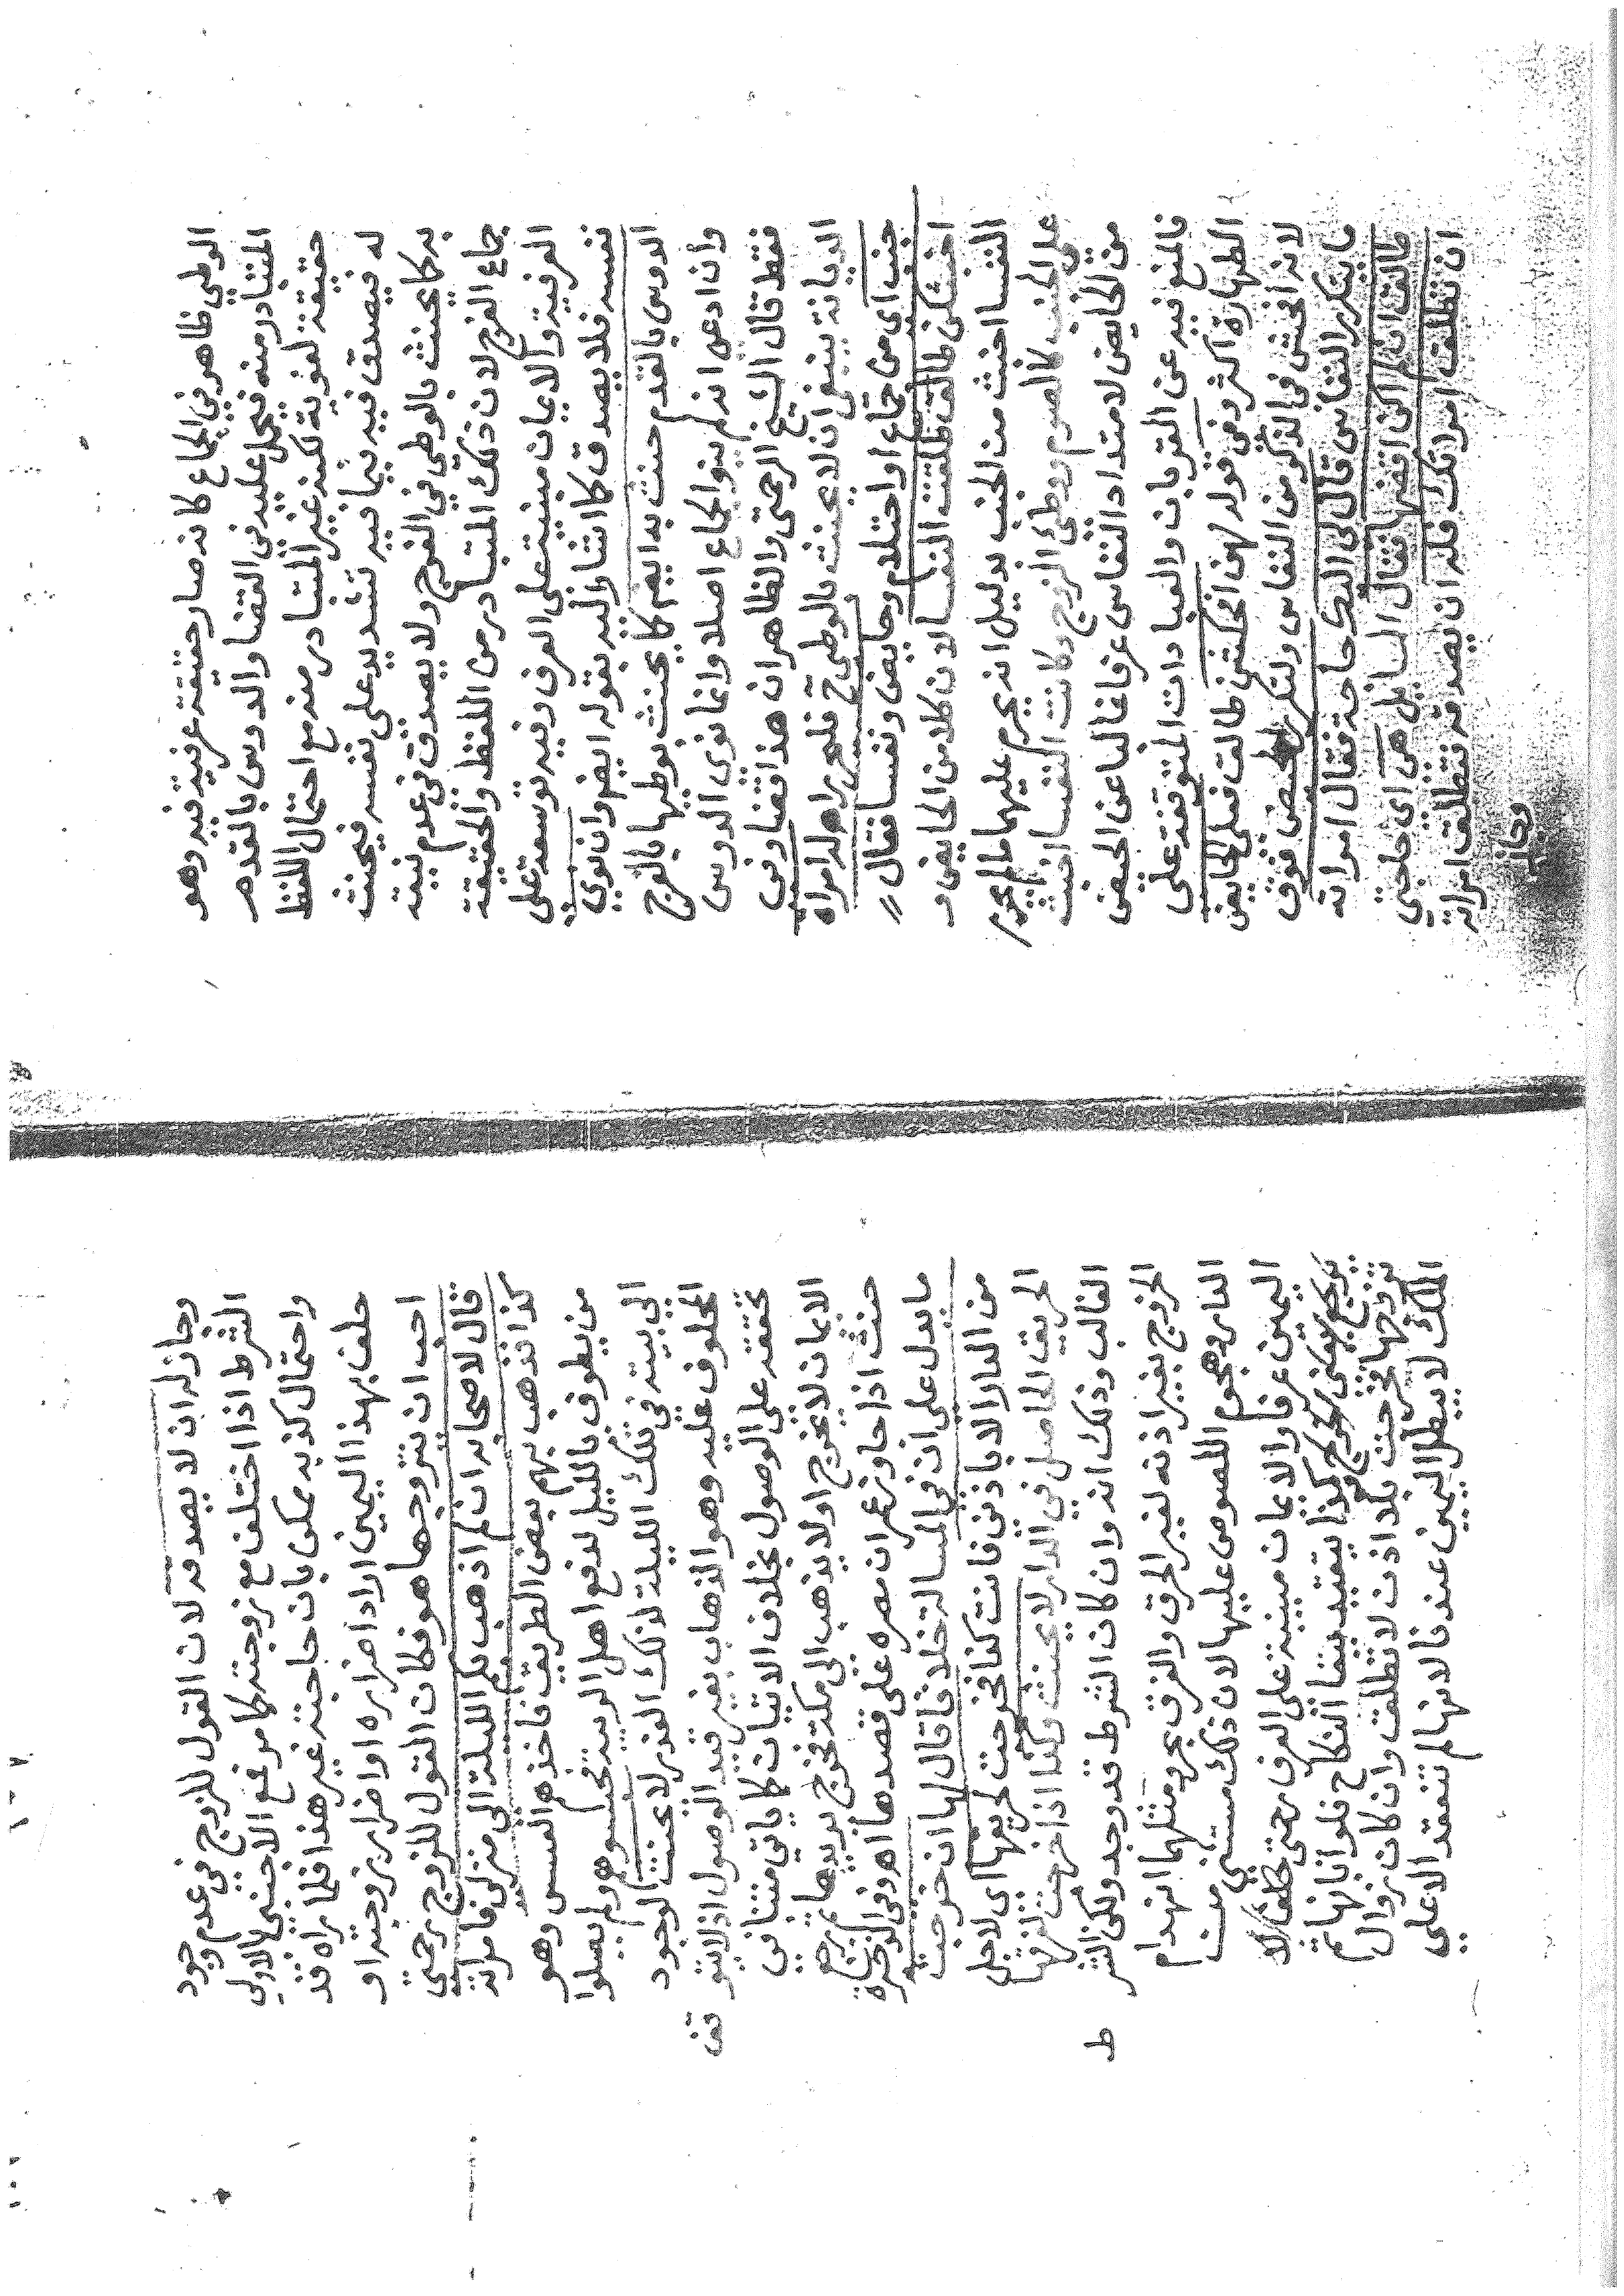 الوطي ظاهر في الجماع كانه صار حقيقة عرفية فيه وهو
المتبادر منه فيحمل عليه في القضا والدوس بالقدم
حقيقة لغوية لكنه غير المتبادر منه مع احتمال اللفظ
له فيصدق فيه بما فيه تشديد على نفسه فيحنث
به كما يحنث بالوطي في الفرج ولا يصدق في عدم نية
جماع الفرج لان ذلك المتبادر من اللفظ والحقيقة
العرفية والايمان مبنية على العرف وفيه توسعة على
نفسه فلا يصدق كما اشار اليه بقوله ايضم وان نوي
الدوس بالقدم حنث به ايضم كما يحنث بوطيها بالفرج
وان ادعى انه لم ينو الجماع اصلا وانما نوى الدوس
فقط قال الشيخ الرحمتي والظاهر ان هذا قضا وفي
الديانة ينبغي ان لا يحنث بالوطي ح فليحرر اهـ له امراة
جنب اي من جماع او احتلام وحايض ونفسا فقال //
اخبثكن طالق طلقت النفسا لان كلا من الحايض و
النفسا اخبث من الجنب بدليل انه يحرم عليهما ما لم يحرم
على الجنب كالصوم ووطئ الزوج وكانت النفسا اخبث
من الحايض لامتداد النفاس عرفا غالبا عن الحيض
فالمنع فيه عن القربات والعبادات المتوقفة على
الطهارة اكثر وفي قوله لهن افحشكن طالق فعلى الحايض
لانه افحش في الذكر من النفاس ولتكرر الحيض فوق
ما يتكرر النفاس قال لي اليك حاجة فقال امراته
طالق ان لم اكن اقضها فقال السايل هي اي حاجتي
ان تطلق امراتك فله ان يصدقه فتطلق امراته
وجاز
وجاز له ان لا يصدقه لان القول للزوج في عدم وجود
الشرط اذا اختلف مع زوجته كما مر فمع الاجنبي بالاولى
واحتمال كذبه ممكن بان حاجته غير هذا فلما راه قد
حلف بهذا اليمين اراد اضراره او اضرار زوجته او
احب ان يتزوجها هو فكان القول للزوج رحمتي
قال لاصحابه ان لم اذهب بكم الليلة الى منزلي فامراته
كذا فذهب بهم بعض الطريق فاخذهم العسس وهو
من يطوف بالليل لدفع اهل الريبة فحبسوهم ولم يصلوا
الى بيته في تلك الليلة لذلك العذر لا يحنث لوجود
المحلوف عليه وهو الذهاب بغير قيد الوصول اذ لا يتو
قف
تحققه على الوصول بخلاف الاتيان كما ياتي متنا في
الايمان لا يخرج او لا يذهب الى مكة فخرج يريدها ثم رجع
حنث اذا جاوز عمران مصره على قصدها اهـ وفي الذخيرة
ما يدل على ان في المسالة خلافا قال لها ان خرجت
من الدار الا باذني فانت كذا فخرجت لحريقها اي لاجل
الحريق الحاصل في الدار لا يحنث وكذا اذا خرجت لغرقها
الغالب وذلك انه وان كان الشرط قد وجد ولكن الشر
ط
الخروج بغير اذنه لغير الحرق والغرق بحر ومثلهما انهدام
الدار وهجوم اللصوص عليها لان ذلك مستثنى من
اليمين عرفا والايمان مبنية على العرف رحتي حلف لا
يتقيد ببقا النكاح فلو ابانها ثم
تزوجها فخرجت بلا اذن لا تطلق وان كان زوال
الملك لا يبطل اليمين عندنا لانها لم تنعقد الا على